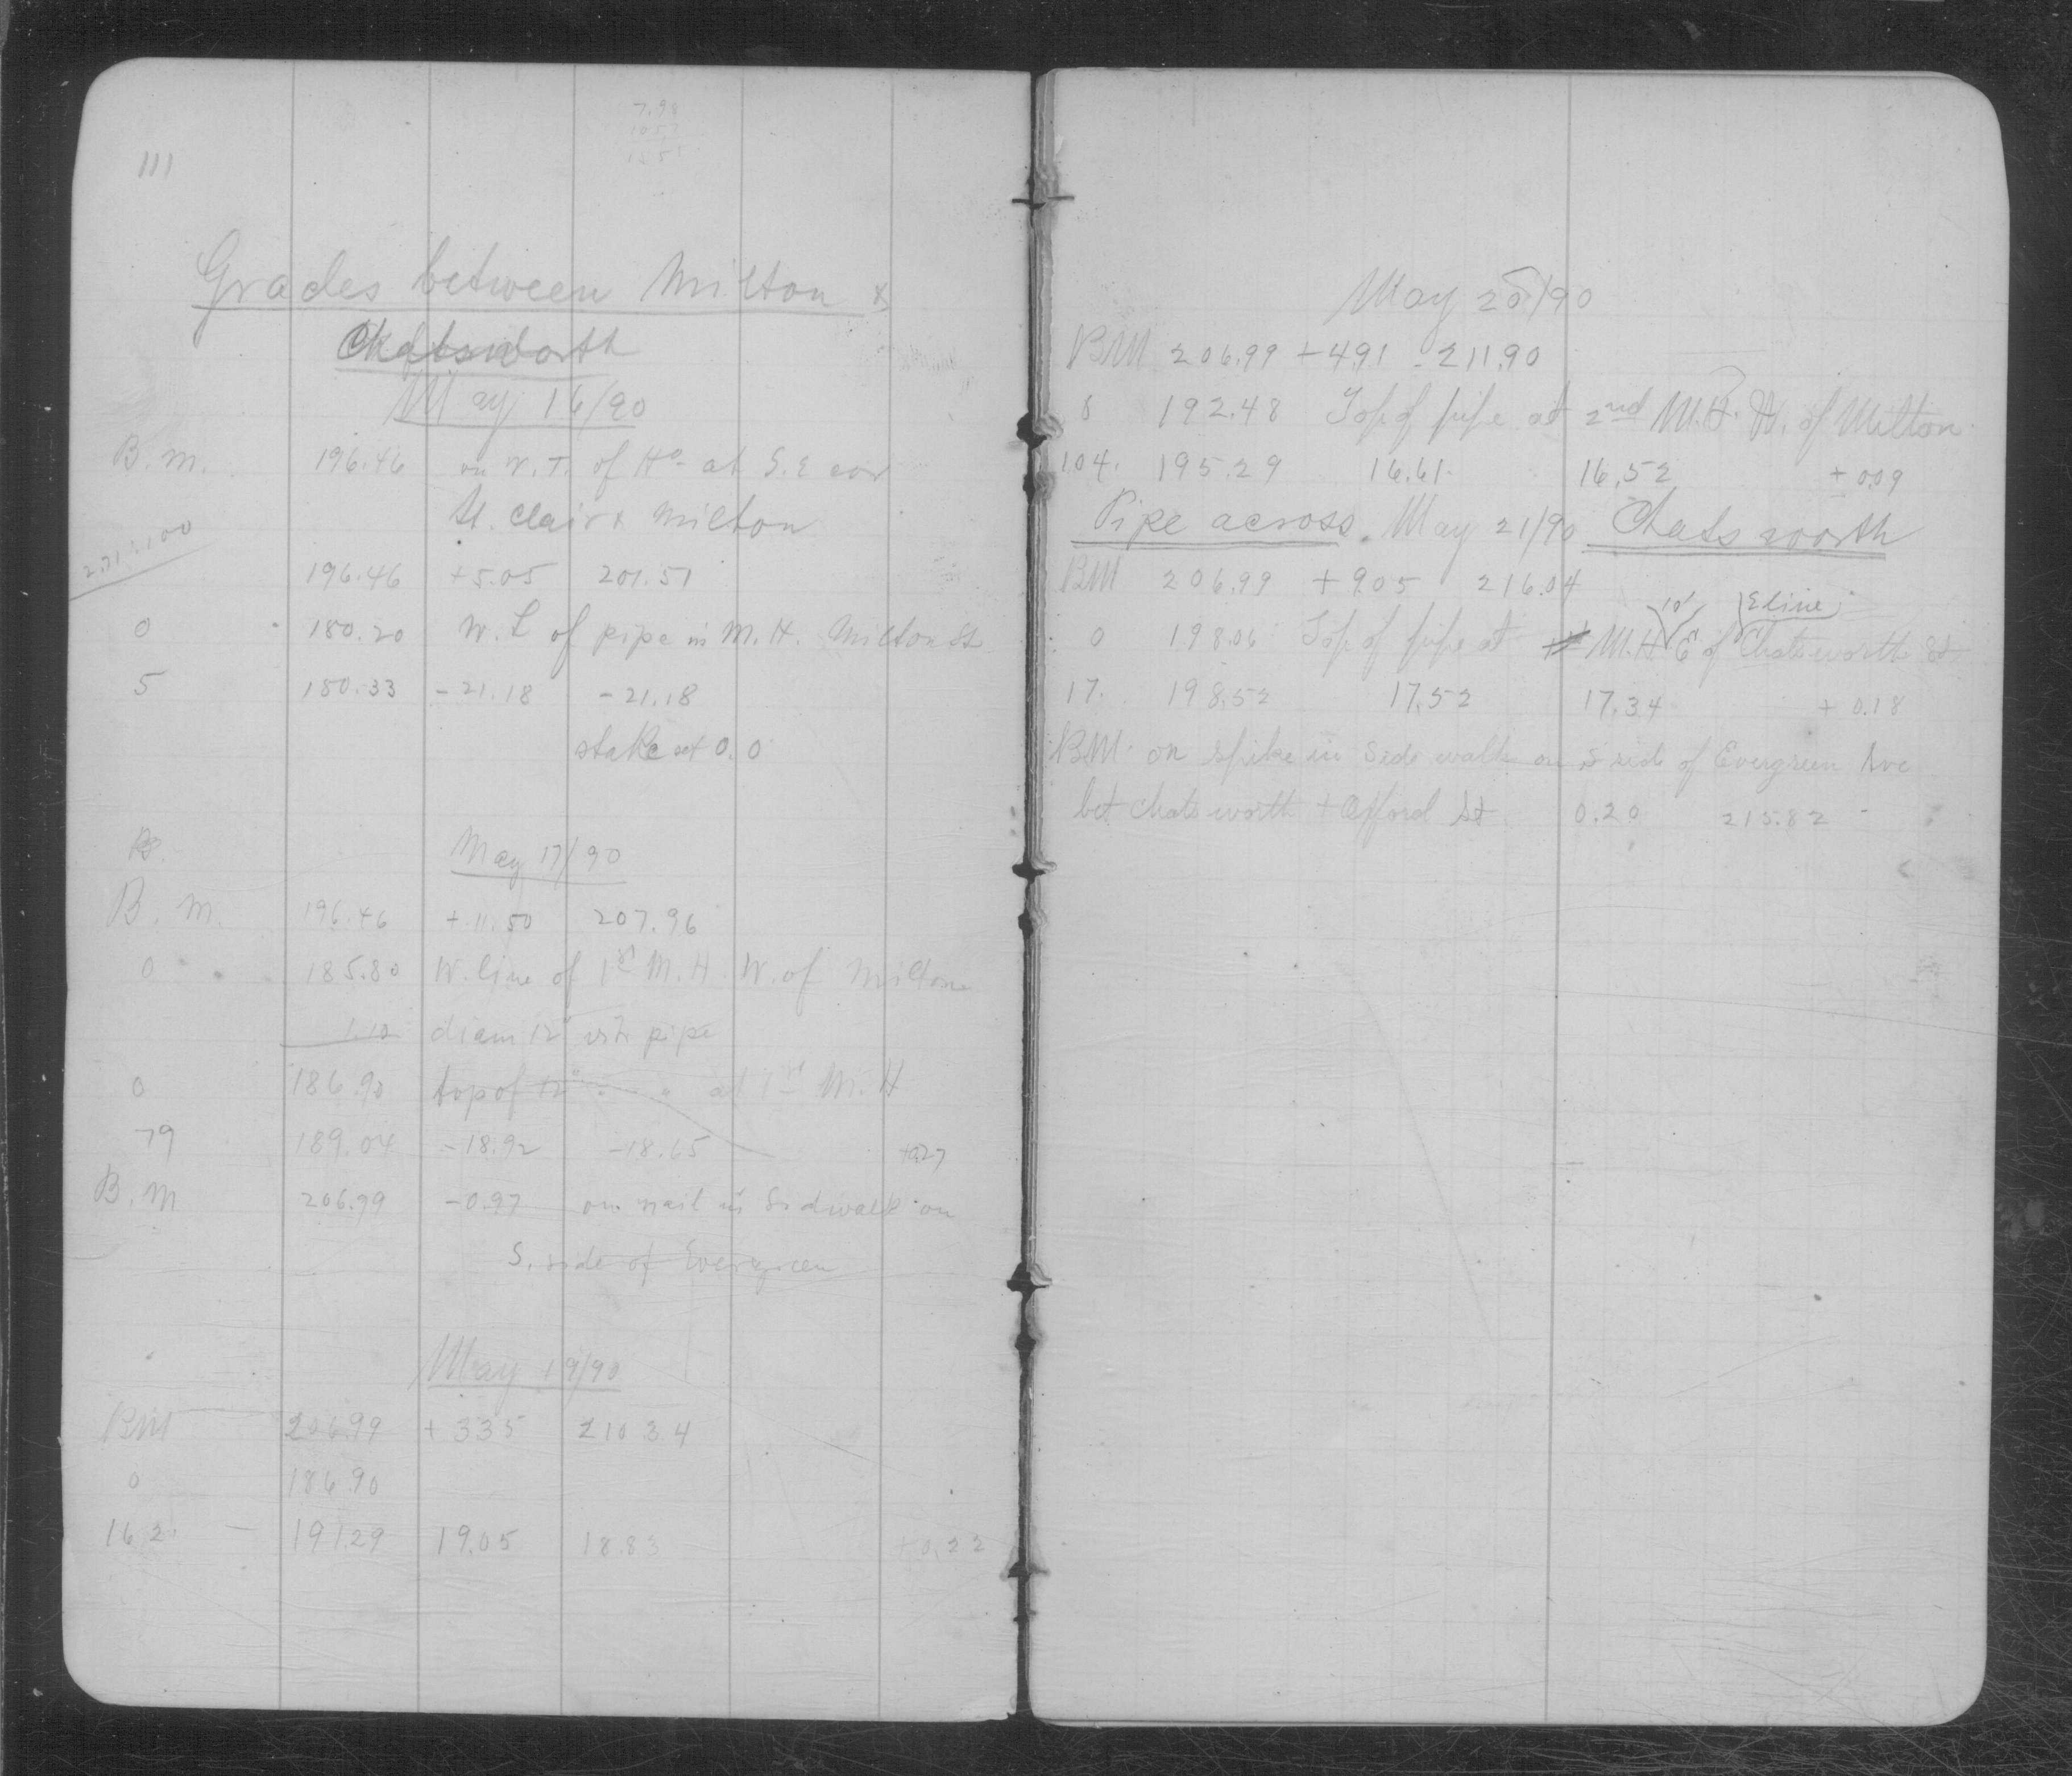 7.98
111
Grades between Milton &
Chatsworth
May 16/90
B.M. 196.46 on W.T. of Ho. at S.E cor
St. Clair & Milton
2.71:100
196.46 +5.05 201.51
0 180.20 W.L of pipe in M.H. Milton St
5 180.33 -21.18 -21.18
stake set 0.0
May 17/90
B.M. 196.46 +11.50 207.96
0 185.80 W.line of 1st M.H. W. of Milton
1.10 diam 12" vit pipe
0 186.90 top of 12" " " at 1st M.H
79 189.04 -18.92 -18.65 +0.27
B.M 206.99 -0.97 on nail in Sidwalk on
S. side of Evergreen
May 19/90
BM 206.99 +335 210 34
0 186.90
162. - 191.29 19.05 18.83 +0.22
May 20/90
BM 206.99 +4.91 - 211.90
192.48 Top of pipe at 2nd M.H. W. of Milton.
104. 195.29 16.61 16.52 +0.09
Pipe across. May 21/90 Chatsworth
BM 206.99 +9.05 216.04
10' E line
0 198.06 Top of pipe at M.H. E of Chatsworth St
17. 198.52 17.52 17.34 +0.18
BM. on spike in Side walk on S side of Evergreen Ave
bet Chatsworth + Oxford St 0.20 215.82 -